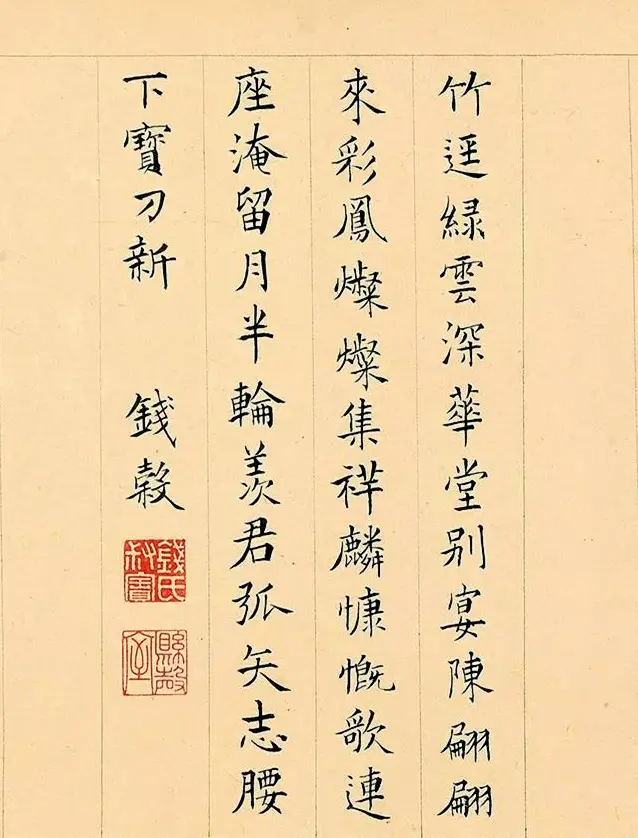 竹逕緑雲深華堂别宴陳翩翩
來彩鳳燦燦集祥麟慷慨歌連
座淹留月半輪羨君弧矢志腰
下寶刀新 錢穀
錢氏叔寶
縣磬室